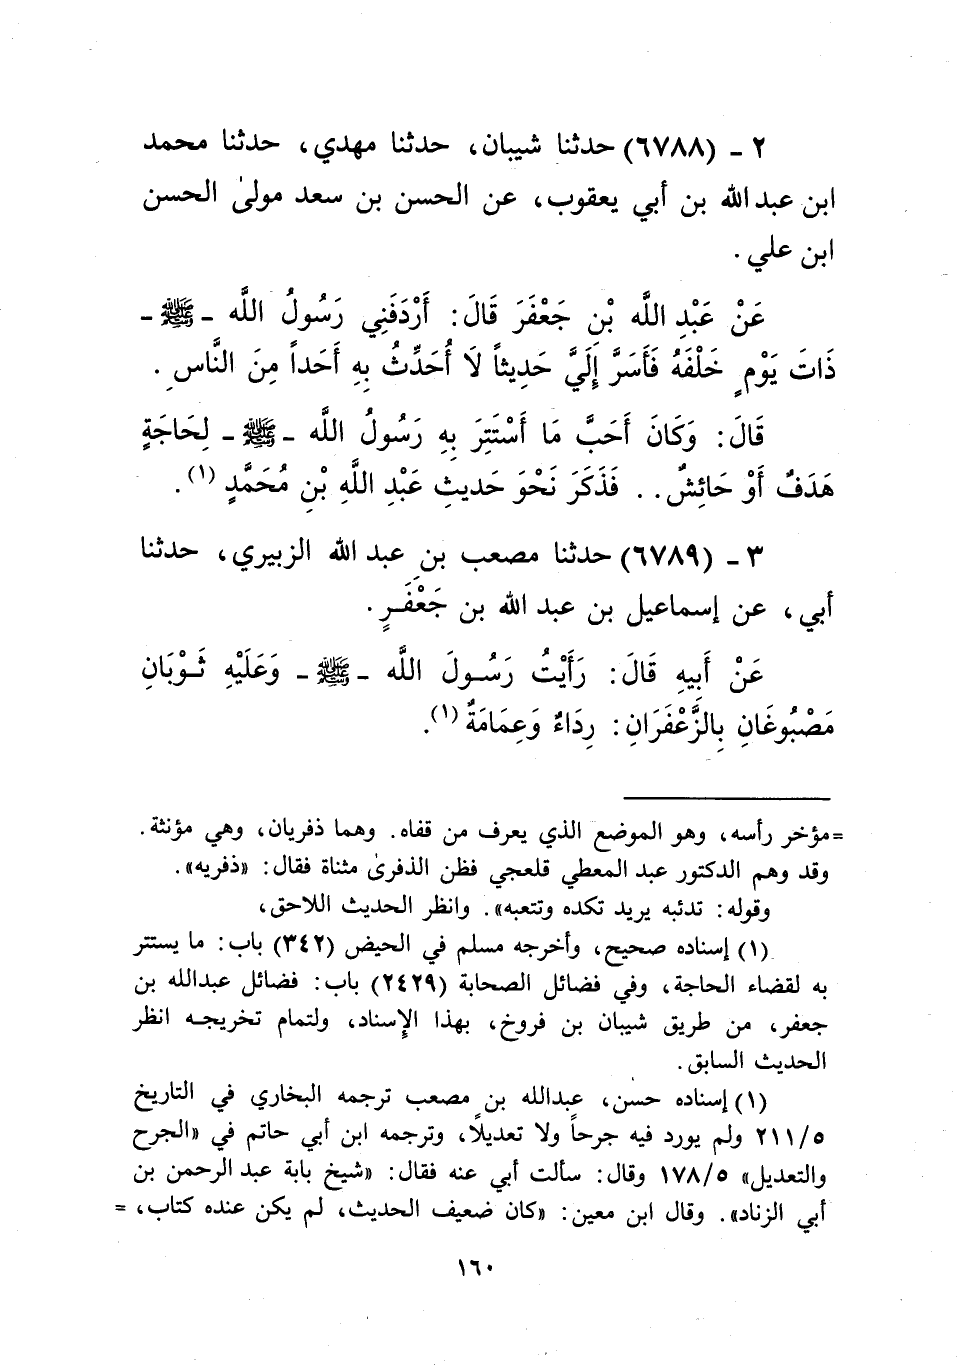 ٢ ـ (٦٧٨٨) حدثنا شيبان، حدثنا مهدي، حدثنا محمد
ابن عبد الله بن أبي يعقوب، عن الحسن بن سعد مولىٰ الحسن
ابن علي .
عَنْ عَبْدِ اللَّه بْنِ جَعْفَرَ قَالَ: أَرْدَفَنِي رَسُولُ اللَّه ـ ﷺ ـ
ذَاتَ يَوْمٍ خَلْفَهُ فَأَسَرَّ إِلَيَّ حَدِيثاً لَا أُحَدِّثُ بِهِ أَحَداً مِنَ النَّاسِ .
قَالَ: وَكَانَ أَحَبَّ مَا أَسْتَتِرَ بِهِ رَسُولُ اللَّه ـ ﷺ ـ لِحَاجَةٍ
هَدَفٌ أَوْ حَائِشٌ . . فَذَكَرَ نَحْوَ حَديثِ عَبْدِ اللَّهِ بْنِ مُحَمَّدٍ (١) .
٣ ـ (٦٧٨٩) حدثنا مصعب بن عبد الله الزبيري، حدثنا
أبي، عن إسماعيل بن عبد الله بن جَعْفَـرٍ .
عَنْ أَبِيهِ قَالَ: رَأَيْتُ رَسُـولَ اللَّه ـ ﷺ ـ وَعَلَيْهِ ثَـوْبَانِ
مَصْبُوغَانِ بِالزَّعْفَرَانِ: رِدَاءٌ وَعِمَامَةٌ (١) .
= مؤخر رأسه، وهو الموضع الذي يعرف من قفاه. وهما ذفريان، وهي مؤنثة .
وقد وهم الدكتور عبد المعطي قلعجي فظن الذفرىٰ مثناة فقال: «ذفريه» .
وقوله: تدئبه يريد تكده وتتعبه» . وانظر الحديث اللاحق،
(١) إسناده صحيح، وأخرجه مسلم في الحيض (٣٤٢) باب: ما يستتر
به لقضاء الحاجة، وفي فضائل الصحابة (٢٤٢٩) باب: فضائل عبدالله بن
جعفر، من طريق شيبان بن فروخ، بهذا الإسناد، ولتمام تخريجـه انظر
الحديث السابق .
(١) إسناده حسن، عبدالله بن مصعب ترجمه البخاري في التاريخ
٥/٢١١ ولم يورد فيه جرحاً ولا تعديلاً، وترجمه ابن أبي حاتم في «الجرح
والتعديل» ٥/١٧٨ وقال: سألت أبي عنه فقال: «شيخ بابة عبد الرحمن بن
أبي الزناد» . وقال ابن معين: «كان ضعيف الحديث، لم يكن عنده كتاب، =
١٦٠